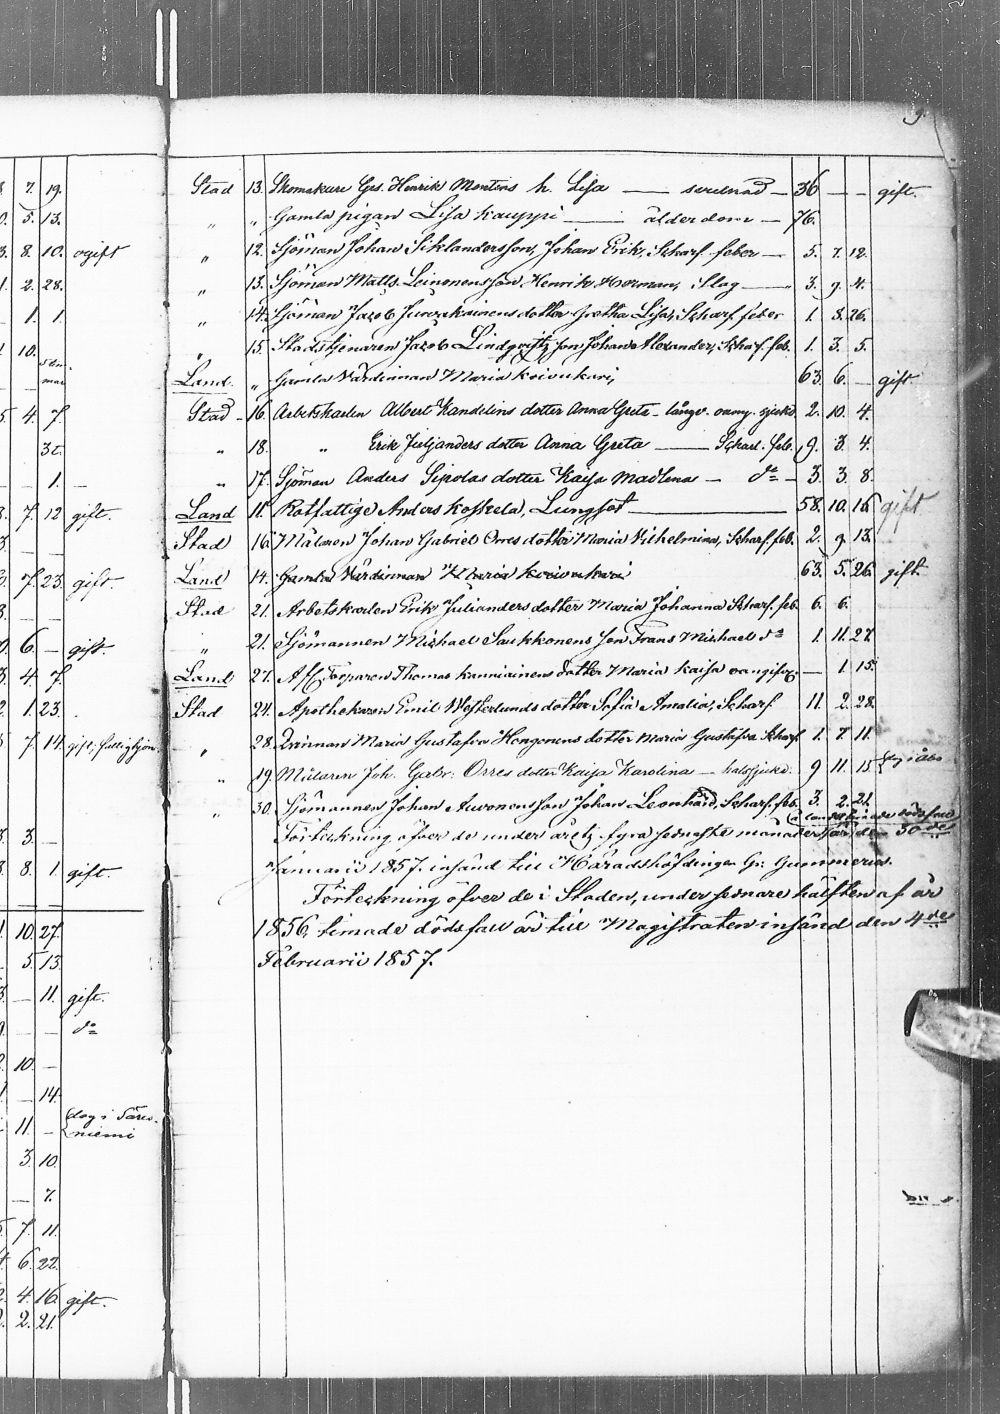 9.
7. 19.
5. 13.
8. 10. ogift
1. 2. 28.
1. 1.
10.
4. 7.
30.
1. –
7. 12 gift.
7. 23. gift.
6. – gift.
4. 7.
1. 23.
7. 14. gift,
3. –
8. 1. gift.
10. 27.
5. 13.
– 11. gift.
– – do
10. –
– 14.
11. – dog i
niemi
3. 10.
– 7.
7. 11.
6. 22.
4. 16. gift.
2. 21.
Stad 13. Skomakare Ges. Henrik Montens h. Lisa — 36 – – gift.
„ „ Gamla pigan Lisa Kauppi — ålderdom — 76.
„ 12. Sjöman Johan Siklanders son, Johan Erik, Scharl. feber — 5. 7. 12.
„ 13. Sjöman Matts Leinonens son Henrik Herman, Slag — 3. 9. 4.
„ 14. Sjöman Jacob dotter Gretha Lisa, Scharl. feber 1. 8. 26.
„ 15. Stadstjenaren Jacob Lindqvists son Johan Alexander, Scharl. feb. 1. 3. 5.
Land. „ Gamla Värdinnan Maria Koivukari, 63. 6. – gift.
Stad – 16. Arbetskarlen Albert Kandelins dotter Anna Greta – 2. 10. 4.
„ 18. „ Erik Juljanders dotter Anna Greta — Scharl. feb. 9. 3. 4.
„ 17. Sjöman Anders Sipolas dotter Kajsa Madlena – do – 3. 3. 8.
Land 11. Rotfattige Anders Koskela, Lungsot — 58. 10. 16. gift
Stad 16. Målaren Johan Gabriel Orres dotter Maria Vilhelmina, Scharl. feb. 2. 9. 13.
Land 14. Gamla Värdinnan Maria Koivukari 63. 5. 26. gift.
Stad 21. Arbetskarlen Erik Julianders dotter Maria Johanna Scharl. feb. 6. 6.
„ 21. Sjömannen Michael Saukkonens son Frans Michael do 1. 11. 27.
Land 27. Afl. Torparen Thomas Kanniainens dotter Maria Kaisa — 1. 15.
Stad 24. Apothekaren Emil Westerlunds dotter Sofia Amalia, Scharl. 11. 2. 28.
„ 28. Qvinnan Maria Gustafva Hongonens dotter Maria Gustafva Scharl. 1. 7. 11.
„ 19. Målaren Joh. Gabr. Orres dotter Kaisa Karolina — halssjuka. 9 11. 15. dog i Åbo
„ 30. Sjömannen Johan Auvonens son Johan Leonhard, Scharl. feb. 3. 2. 21.
å landet timade dödsfall
Förteckning öfver de under årets fyra sednaste månader är den 30des
Januarii 1857. insänd till Häradshöfdingen Gr: Gummerus.
Förteckning öfver de i Staden, under sednare hälften af år
1856, timade dödsfall är till Magistraten insänd den 4des
Februarii 1857.